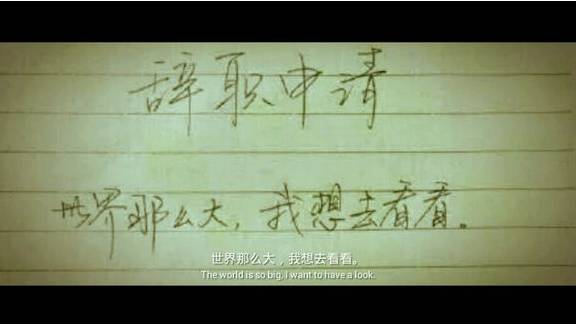 辞职申请
世界那么大，我想去看看。
世界那么大，我想去看看。
The world is so big, I want to have a look.